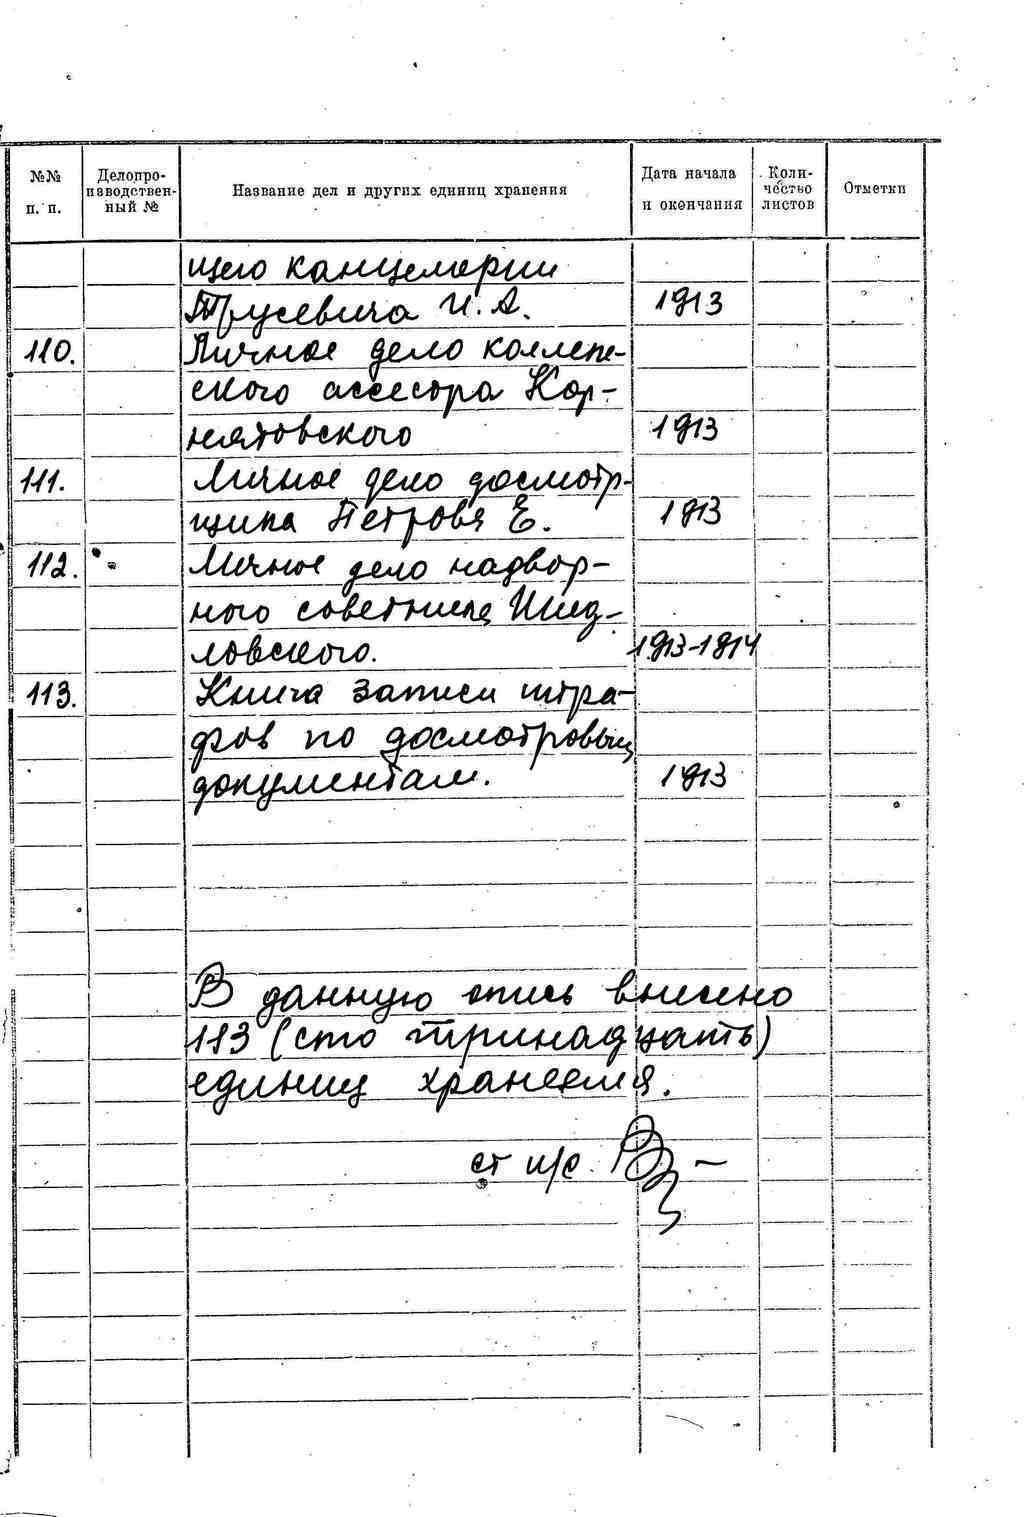 №№ п. п. Делопро-изводствен-ный № Название дел и других единиц хранения Дата начала и окончания Коли-чество листов Отметки
щего канцелярии
Трусевича И. А. 1913
110. Личное дело коллеж-
ского ассесора Кор-
нятовского 1913
111. Личное дело досмотр-
щика Петрова Е. 1913
112. Личное дело надвор-
ного советника Шид-
ловского. 1913-1914
113. Книга записи штра-
фов по досмотровым
документам. 1913
В данную опись внесено
113 (сто тринадцать)
единиц хранения.
ст н/с.